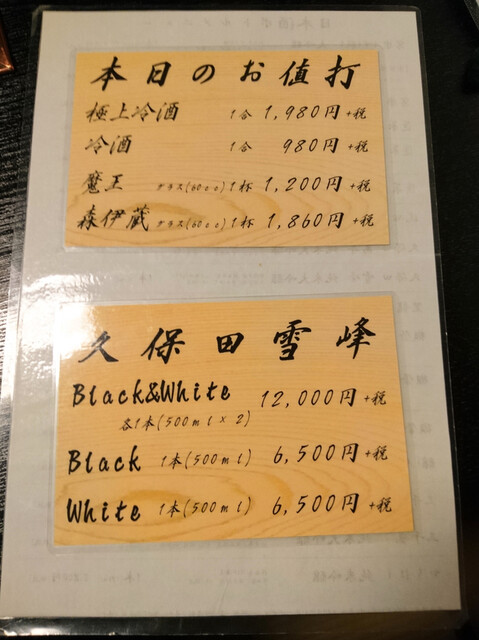 本日のお値打
極上冷酒 1合 1,980円+税
冷酒 1合 980円+税
魔王 グラス(60cc)1杯 1,200円+税
森伊蔵 グラス(60cc)1杯 1,860円+税
久保田雪峰
Black&White 12,000円+税
各1本(500ml×2)
Black 1本(500ml) 6,500円+税
White 1本(500ml) 6,500円+税